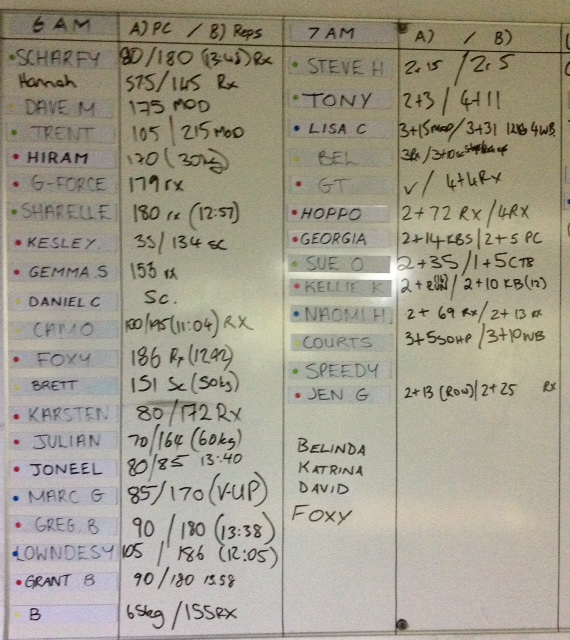 6 AM A) PC / B) Reps
SCHARFY 80/180 (13:45) Rx
Hannah 575/145 Rx
DAVE M 175 MOD
TRENT 105 / 215 MOD
HIRAM 170 (30kg)
G-FORCE 179 rx
SHARELLE 180 rx (12:57)
KESLEY 35/134 sc
GEMMA.S 153 rx
DANIEL C Sc.
CAMO 100/195 (11:04) RX
FOXY 186 Rx (1242)
BRETT 151 Sc (50kg)
KARSTEN 80/172 Rx
JULIAN 70/164 (60kg)
JONEEL 80/85 13:40
MARC G 85/170 (V-UP)
GREG.B 90 / 180 (13:38)
LOWNDESY 105 / 186 (12:05)
GRANT B 90/180 13.58
B 65kg / 155RX
7 AM A) / B)
STEVE H 2. 15 / 2. 5
TONY 2+3 / 4+11
LISA C 3+15 MOD / 3+31 12KG 4WB
BEL
GT ✓ / 4+4 RX
HOPPO 2+72 RX / 4RX
GEORGIA 2+14 KBS / 2+5 PC
SUE O 2+35 / 1+5 CTB
KELLIE K 2+RUN (16) / 2+10 KB (12)
NAOMI H 2+ 69 Rx / 2+ 13 rx
COURTS 3+55 OHP / 3+10 WB
SPEEDY
JEN G 2+13 (ROW) / 2+25 RX
BELINDA
KATRINA
DAVID
FOXY